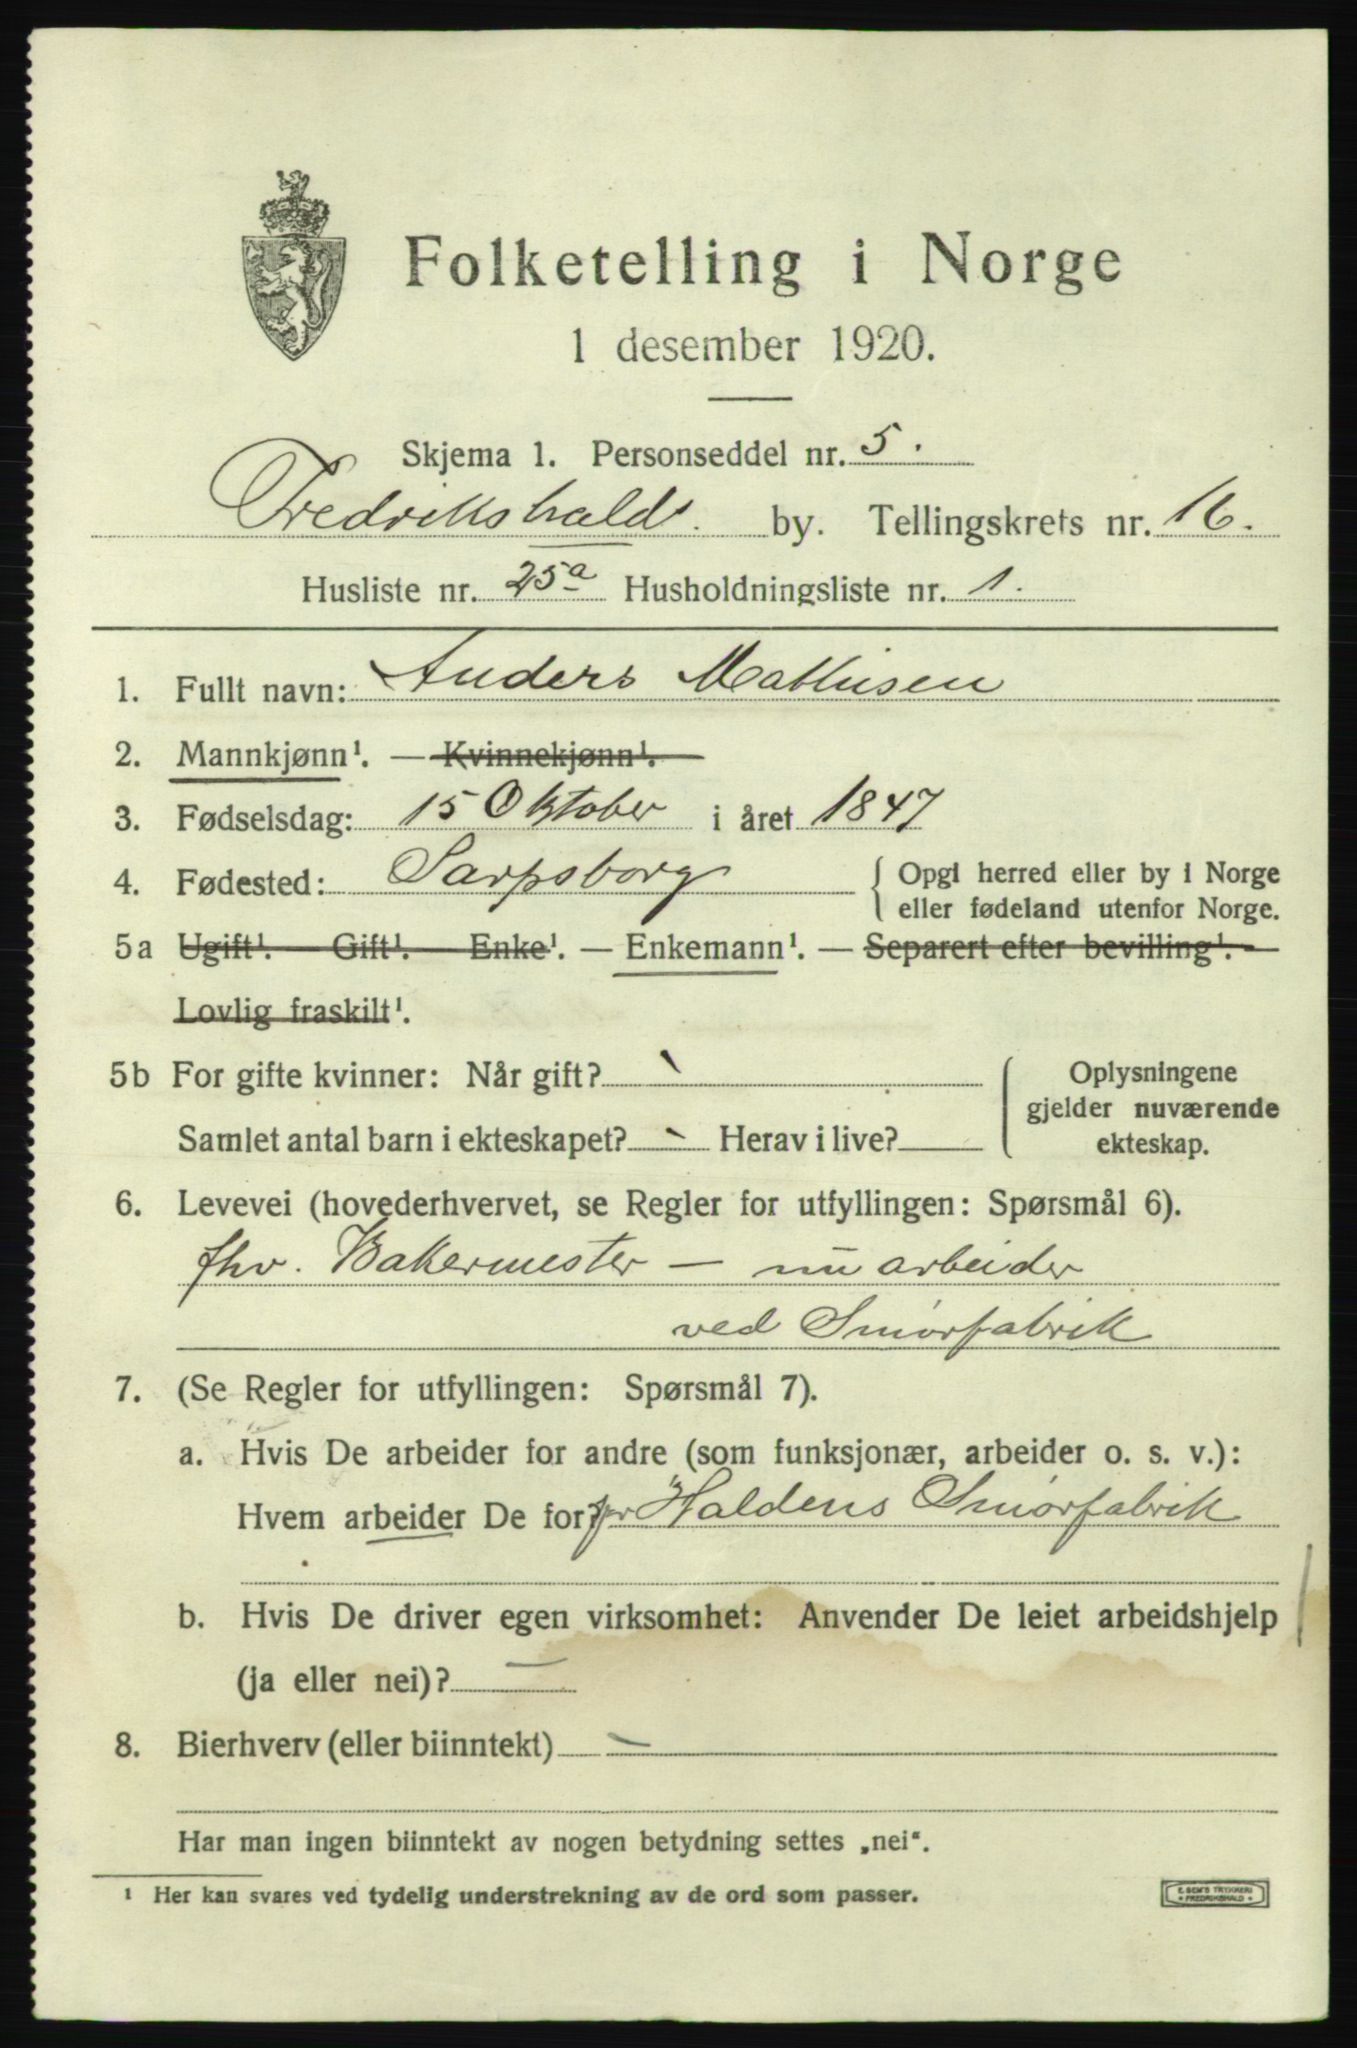 Folketelling i Norge
1 desember 1920.
Skjema 1. Personseddel nr. 5.
Fredrikshald. by. Tellingskrets nr. 16.
Husliste nr. 25a Husholdningsliste nr. 1.
1. Fullt navn: Anders Mathisen
2. Mannkjønn¹. — Kvinnekjønn¹.
3. Fødselsdag: 15 Oktober i året 1847
4. Fødested: Sarpsborg { Opgi herred eller by i Norge
eller fødeland utenfor Norge.
5a Ugift¹. — Gift¹. — Enke¹. — Enkemann¹. — Separert efter bevilling¹. —
Lovlig fraskilt¹.
5b For gifte kvinner: Når gift?
Samlet antal barn i ekteskapet? Herav i live?
Oplysningene
gjelder nuværende
ekteskap.
6. Levevei (hovederhvervet, se Regler for utfyllingen: Spørsmål 6).
fhv. Bakermester — nu arbeider
ved Smørfabrik
7. (Se Regler for utfyllingen: Spørsmål 7).
a. Hvis De arbeider for andre (som funksjonær, arbeider o. s. v.):
Hvem arbeider De for? Haldens Smørfabrik
b. Hvis De driver egen virksomhet: Anvender De leiet arbeidshjelp
(ja eller nei)? —
8. Bierhverv (eller biinntekt) —
Har man ingen biinntekt av nogen betydning settes „nei“.
¹ Her kan svares ved tydelig understrekning av de ord som passer.
E. SEM'S TRYKKERI
FREDRIKSHALD